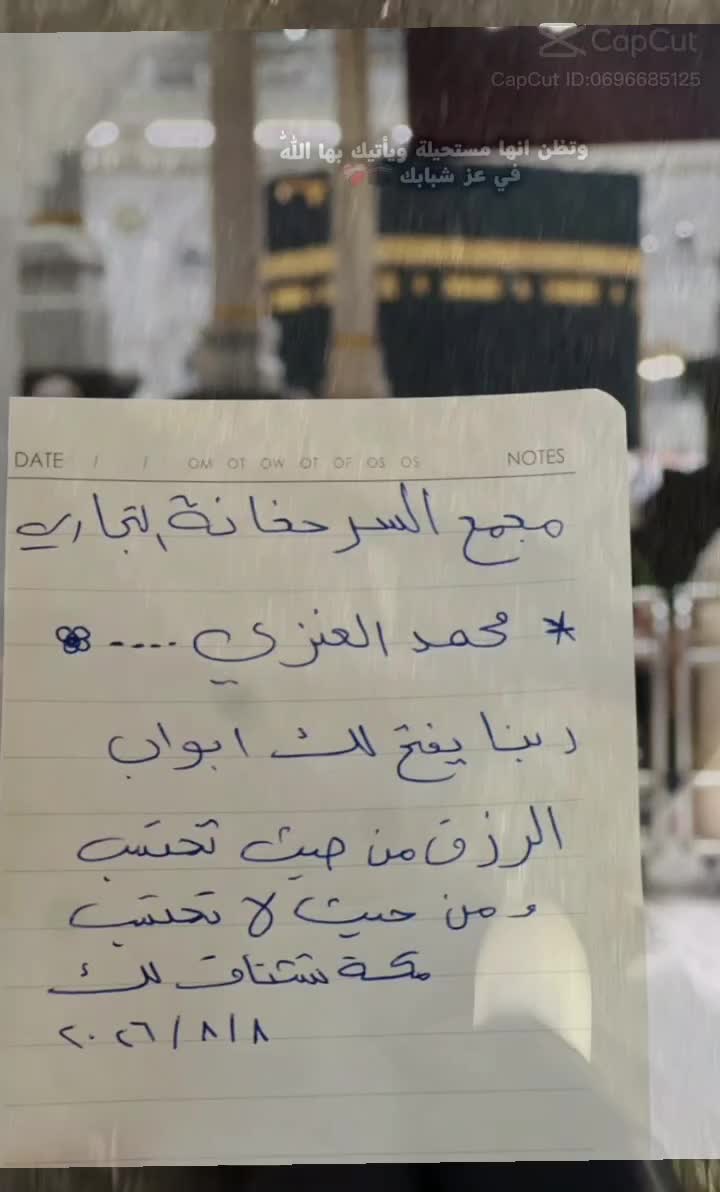 CapCut
CapCut ID:0696685125
وتظن انها مستحيلة ويأتيك بها الله
في عز شبابك
DATE / / OM OT OW OT OF OS OS NOTES
مجمع السرحانة التجاري
* محمد العنزي ....
ربنا يفتح لك ابواب
الرزق من حيث تحتسب
ومن حيث لا تحتسب
مكة تشتاق لك
٢٠٢٦/٨/٨